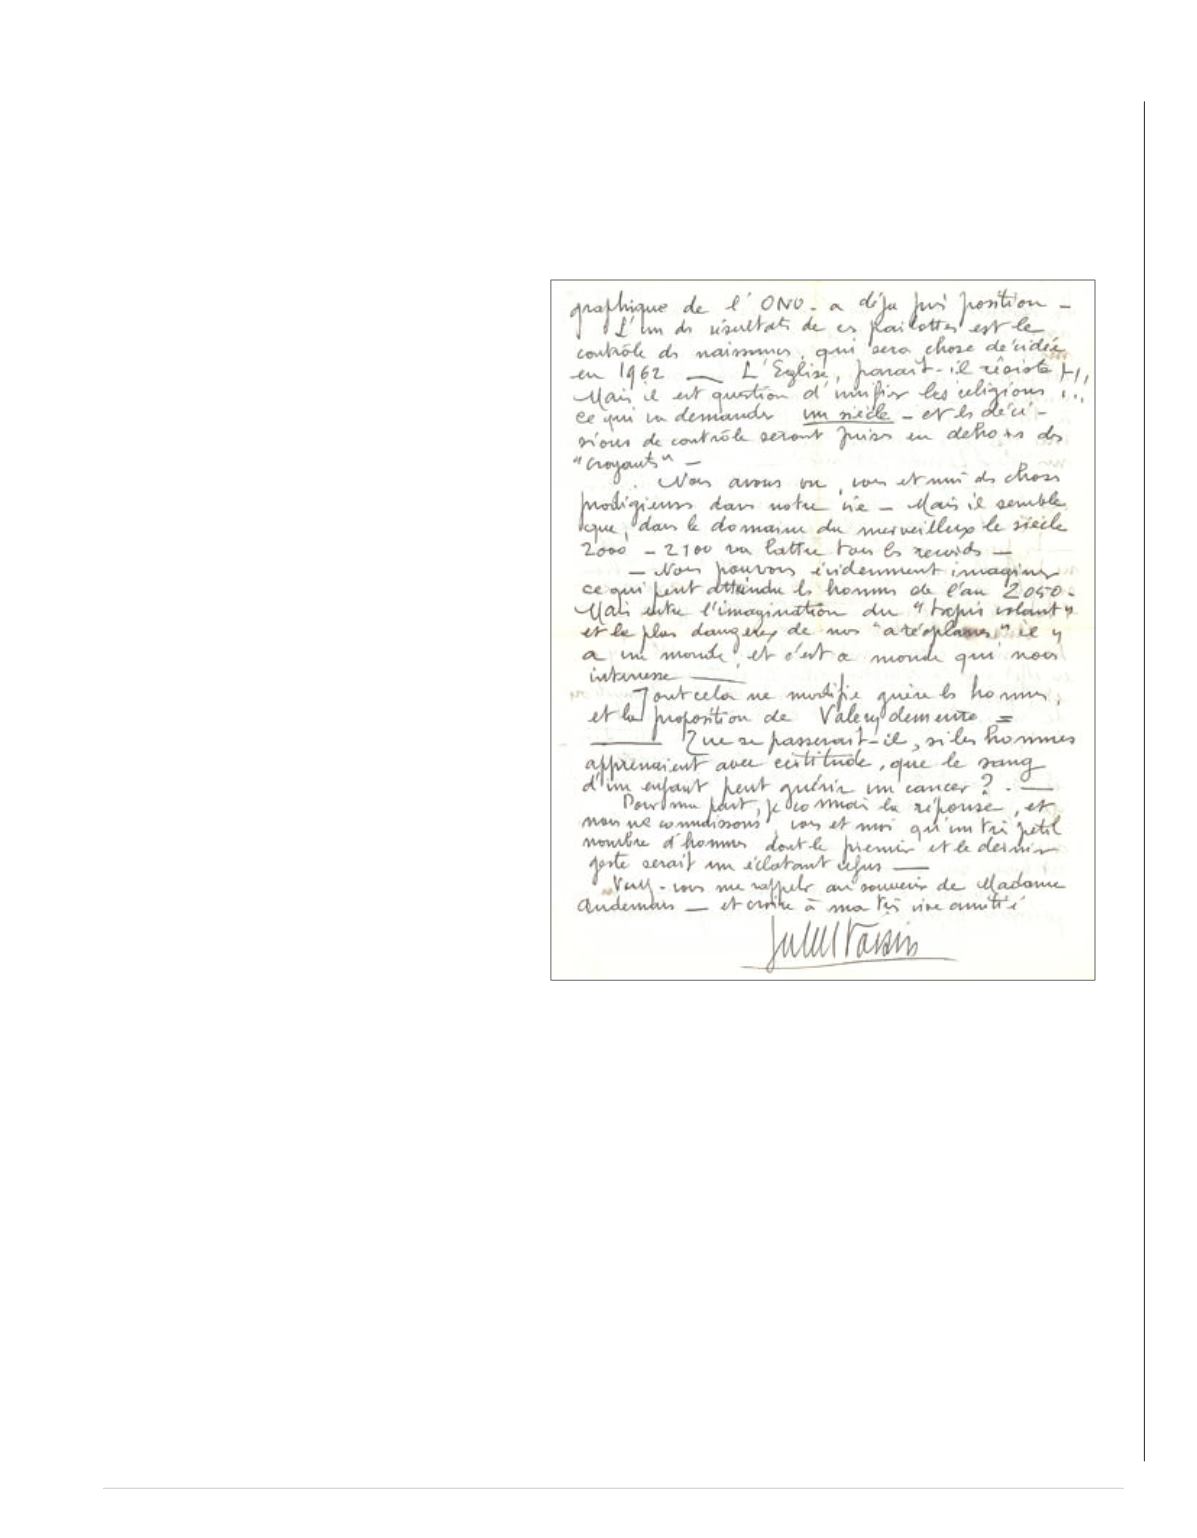 graphique de l'ONU - a déjà pris position -
L'un des résultats de ces est le
contrôle des naissances, qui sera chose décidée
en 1962 — L'Eglise, parait-il résiste !!!
Mais il est question d'unifier les religions ...
ce qui va demander un siècle - et les déci-
sions de contrôle seront prises en dehors des
"croyants" -
Nous avons vu, vous et moi des choses
prodigieuses dans notre vie - Mais il semble
que, dans le domaine du merveilleux le siècle
2000 - 2100 va battre tous les records -
- Nous pouvons évidemment imaginer
ce qui peut attendre les hommes de l'an 2050.
Mais entre l'imagination du "tapis volant"
et le plus dangereux de nos "aréoplanes" il y
a un monde, et c'est ce monde qui nous
intéresse —
Tout cela ne modifie guère les hommes,
et la proposition de Valery demeure =
— Que se passerait-il, si les hommes
apprenaient avec certitude, que le sang
d'un enfant peut guérir un cancer ? . —
Pour ma part, je connais la réponse, et
nous ne connaissons, vous et moi qu'un très petit
nombre d'hommes dont le premier et le dernier
geste serait un éclatant refus —
Veuillez-vous me rappeler au souvenir de Madame
Audemars — et croire à ma très vive amitié